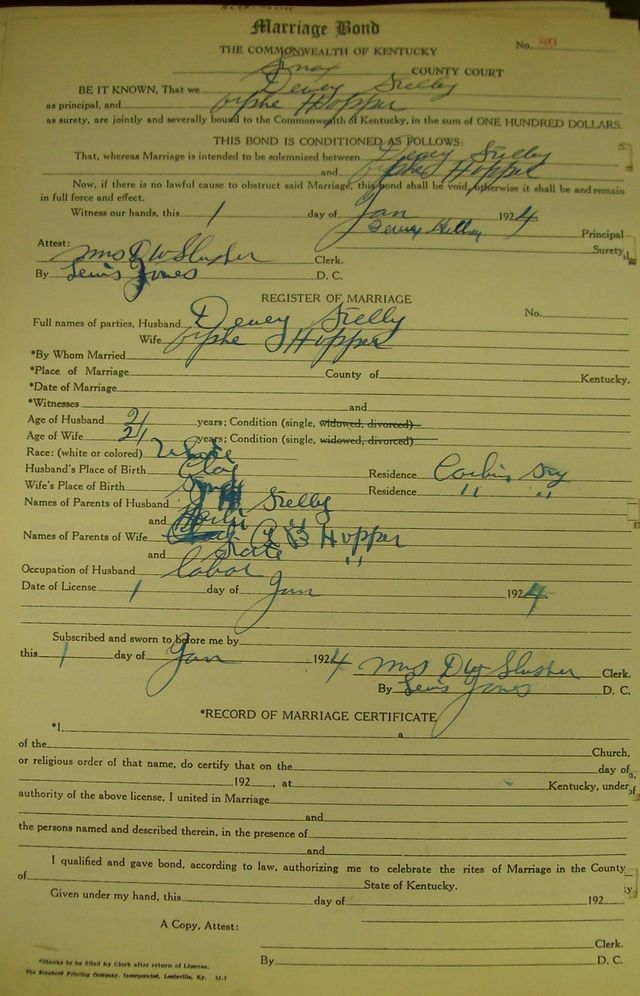 Marriage Bond
THE COMMONWEALTH OF KENTUCKY
No. 80
Knox COUNTY COURT
BE IT KNOWN, That we Dewey
as principal, and Hopper
as surety, are jointly and severally bound to the Commonwealth of Kentucky, in the sum of ONE HUNDRED DOLLARS.
THIS BOND IS CONDITIONED AS FOLLOWS:
That, whereas Marriage is intended to be solemnized between Dewey
and Hopper
Now, if there is no lawful cause to obstruct said Marriage, this bond shall be void, otherwise it shall be and remain
in full force and effect.
Witness our hands, this 1 day of Jan 1924
Dewey Principal
Surety,
Attest:
Mrs D W Slusher Clerk.
By Lewis Jones D. C.
REGISTER OF MARRIAGE
Full names of parties, Husband Dewey No.
Wife Hopper
*By Whom Married
*Place of Marriage County of Kentucky.
*Date of Marriage
*Witnesses and
Age of Husband 21 years; Condition (single, widowed, divorced)
Age of Wife 21 years; Condition (single, widowed, divorced)
Race: (white or colored) White
Husband's Place of Birth Clay Residence Corbin Ky
Wife's Place of Birth Knox Residence " "
Names of Parents of Husband
and "
Names of Parents of Wife B Hopper
and Kate "
Occupation of Husband labor
Date of License 1 day of Jan 1924.
Subscribed and sworn to before me by
this 1 day of Jan 1924 Mrs D W Slusher Clerk.
By Lewis Jones D. C.
*RECORD OF MARRIAGE CERTIFICATE
*I, a
of the Church,
or religious order of that name, do certify that on the day of
192 , at Kentucky, under
authority of the above license, I united in Marriage
and
the persons named and described therein, in the presence of
and
I qualified and gave bond, according to law, authorizing me to celebrate the rites of Marriage in the County
of State of Kentucky.
Given under my hand, this day of 192
A Copy, Attest:
Clerk.
By D. C.
*Blanks to be filled by Clerk after return of License.
The Standard Printing Company, Incorporated, Louisville, Ky. M-7